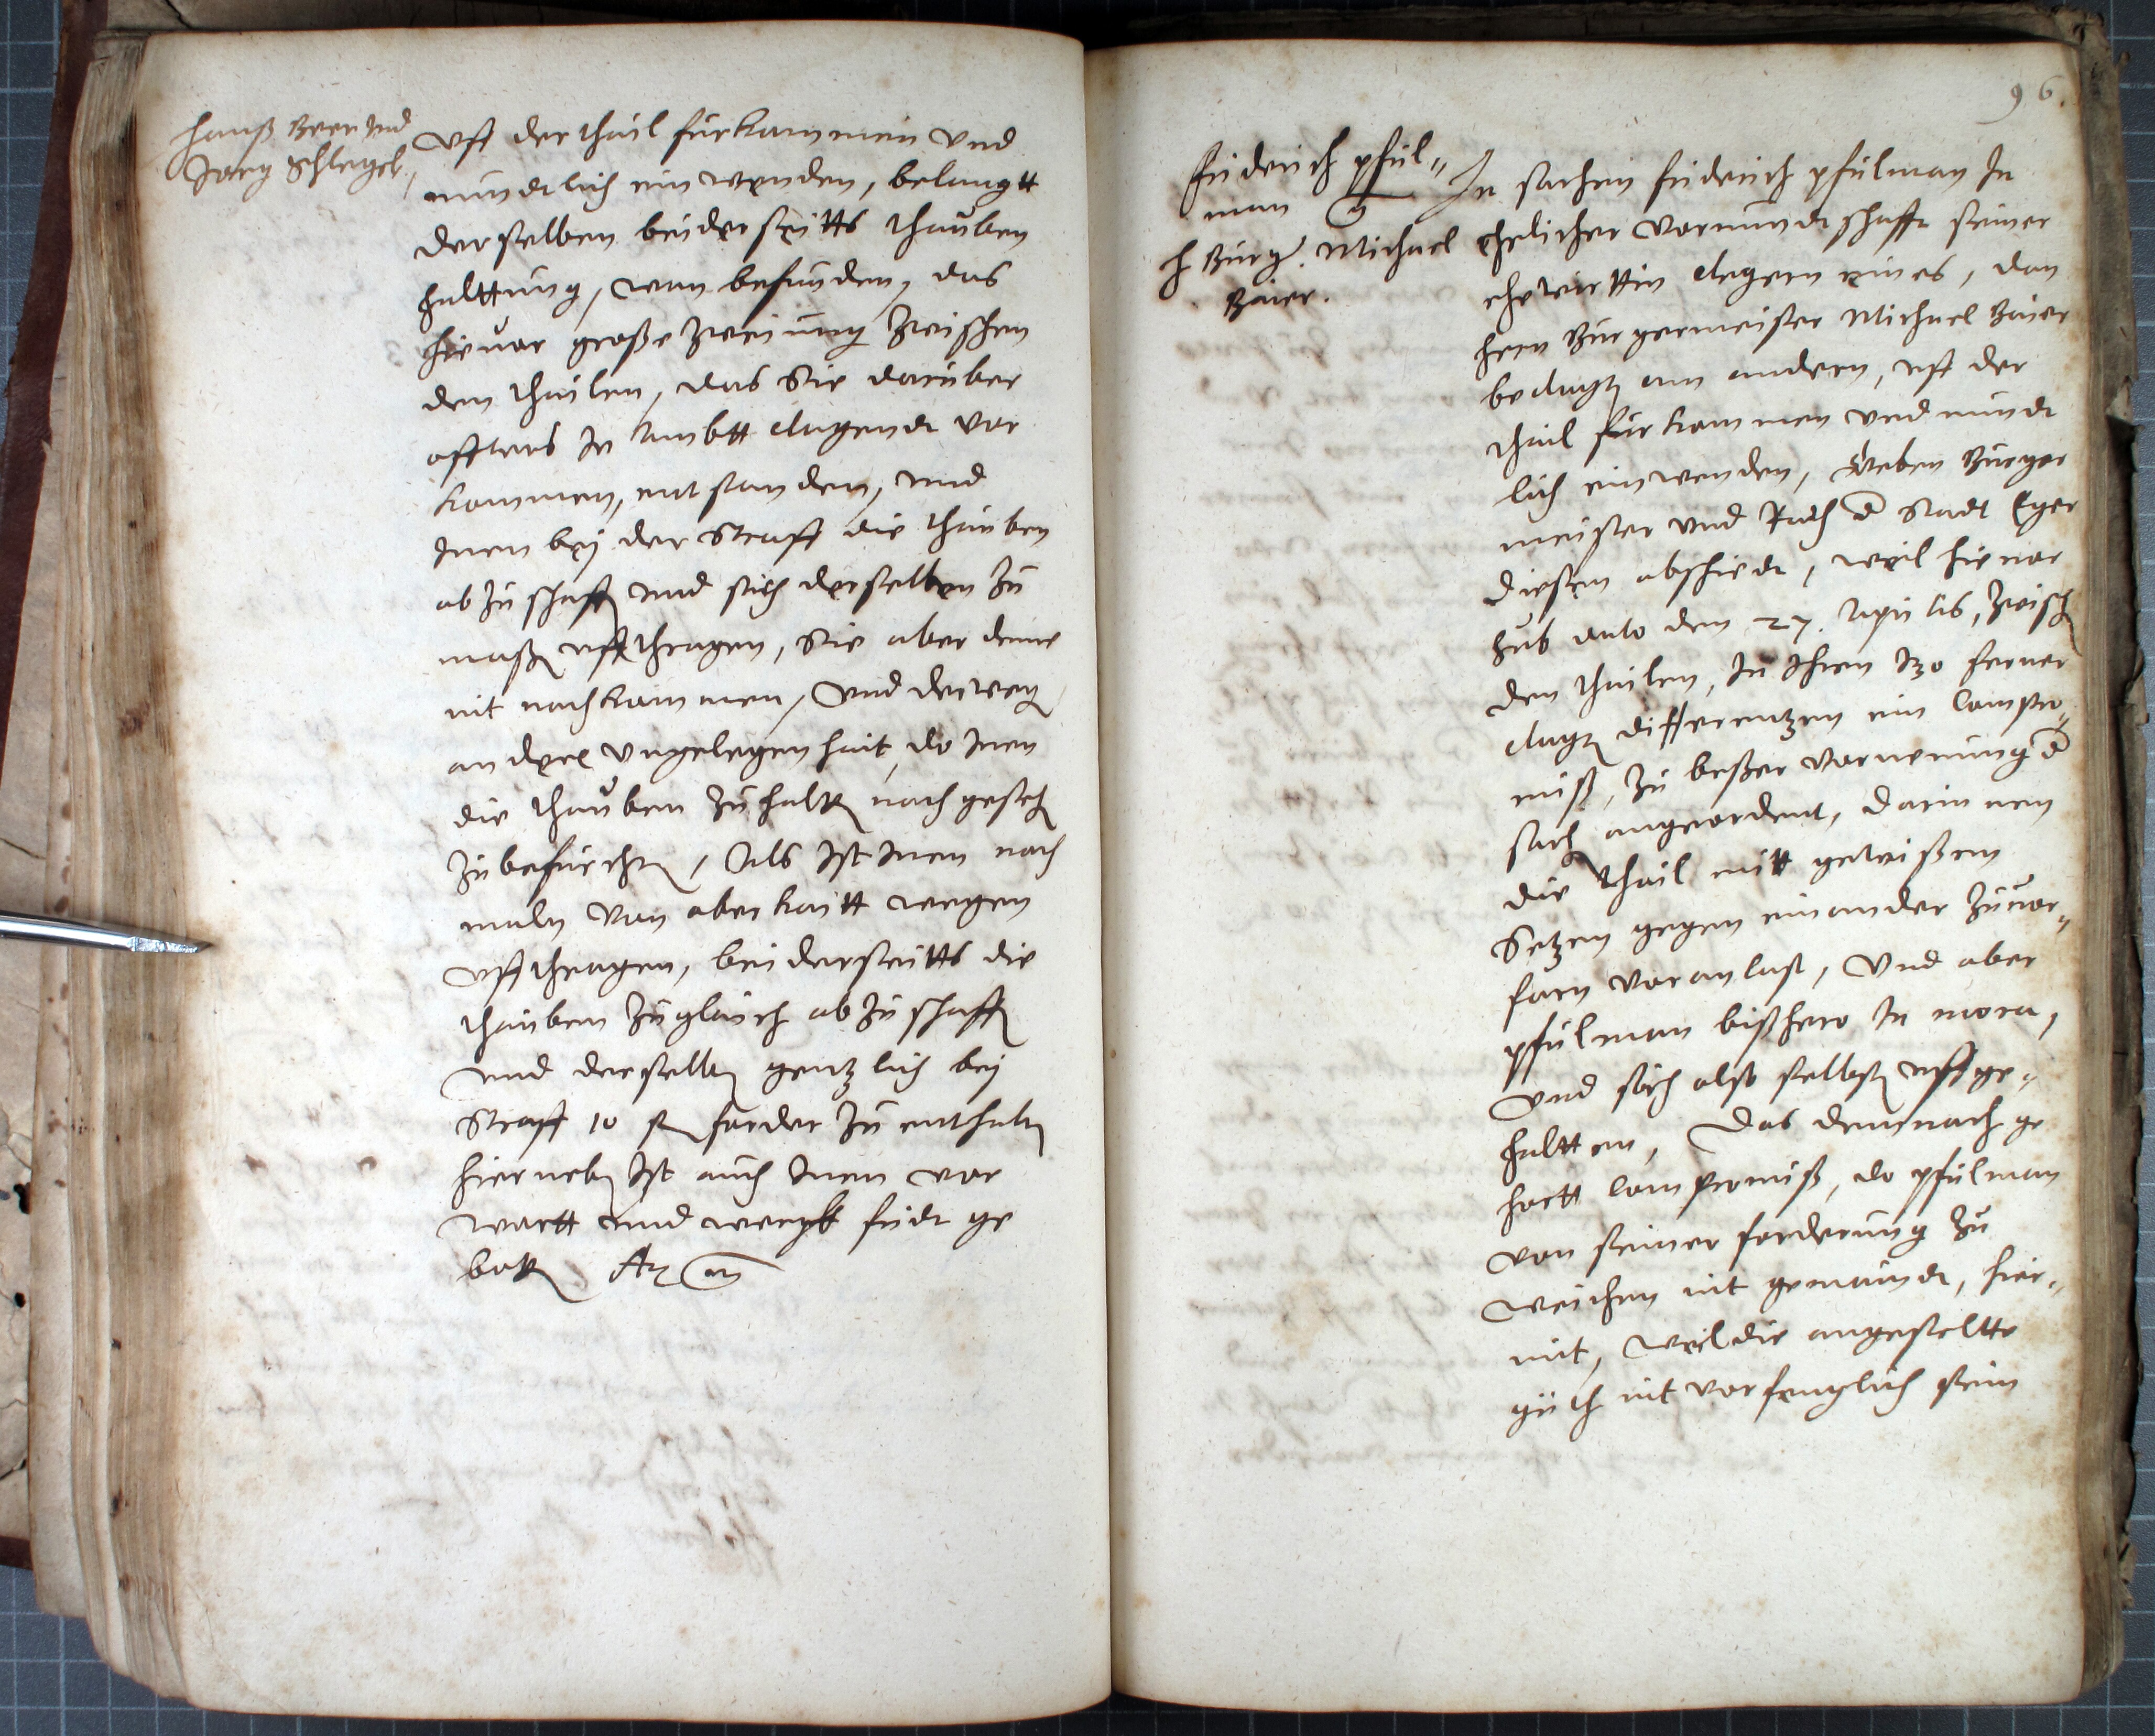 Hanß Beer und
Jorg Schlegel.
Uff der thail furkommen und
mundtlich einwenden, belangtt
derselben beiderseitts thauben
halttung, wan befunden, das
hievor große Zweiung Zwischen
den thailen, das Sie daruber
offters In Ambtt clagendt vor
kommen, entstanden, und
Inen bej der Straff die thauben
abzuschaffen und sich derselben Zu
maßen ufftragen, Sie aber deme
nit nachkommen, Und derwegen
andere Ungelegenhait, do Inen
die thauben Zuhalten nachgesehen
Zubefurchten, Als Ist Inen noch
maln von oberkaitt wegen
uffthragen, beiderseitts die
thauben Zugleich abzuschaffen
und derselben gentzlich bej
Straff 10 ß forder Zuenthalten
hierneben Ist auch Inen vor
wortt und werckh fridt ge
botten
96.
Friderich pful=
man
H Burg. Michael
Baier.
In sachen friderich pfulman In
ehelicher vormundtschafft seiner
ehewirttin clegern eines, dan
hern Burgermeister Michael Baier
beclagten am andern, uff der
thail furkommen und mundt
lich einwenden, Geben Burger
meister und Rath d Stadt Eger
diesen abschiedt, weil hievor
sub dato den 27. Aprilis, Zwischen
den thailen, In Ihren Izo ferner
clagten differentzen ein Compro=
miß, Zu beßer vornemung d
sach angeordent, darinnen
die thail mitt gewißen
Setzen gegen einander Zuvor=
farn voranlast, Und aber
pfulman bißhero In mora,
Und sich also selbst uffge=
haltten, Das demnach ge
hortt Compromiß, do pfulman
von seiner forderung Zu
weichen nit gemaindt, hier=
mit, weil die angestelte
guth nit vorfenglich sein